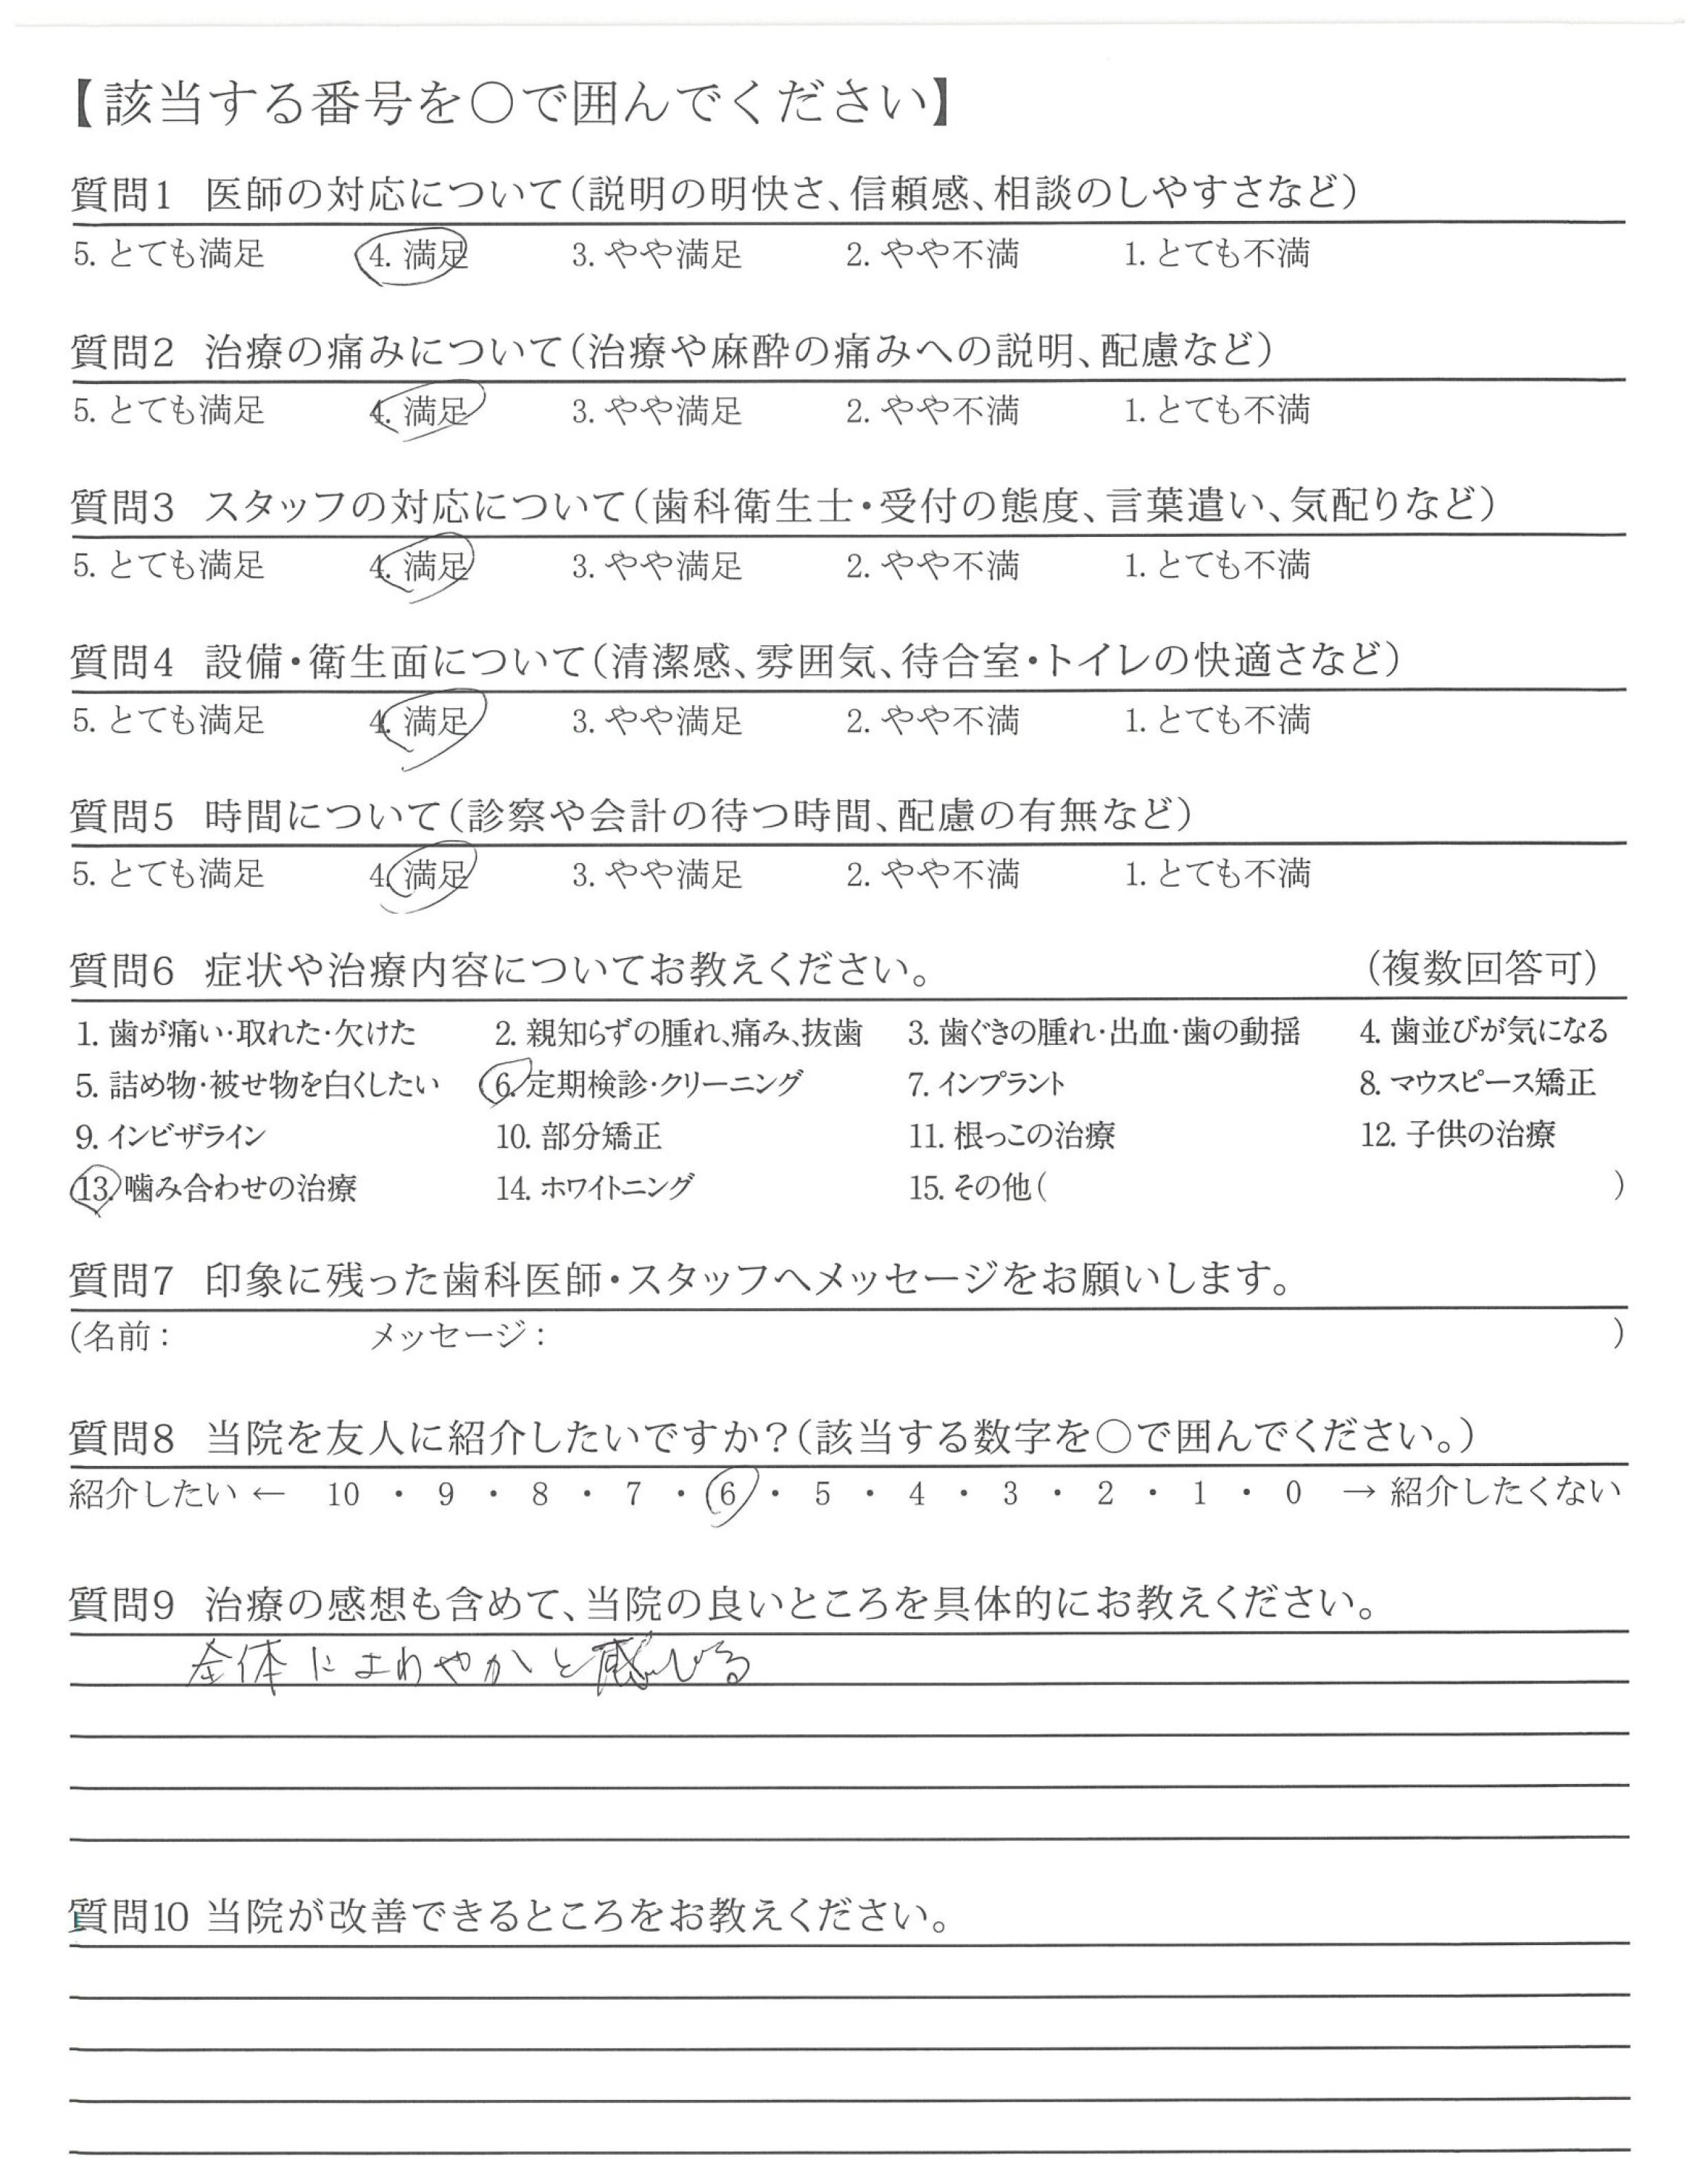 【該当する番号を○で囲んでください】
質問1 医師の対応について(説明の明快さ、信頼感、相談のしやすさなど)
5. とても満足 4. 満足 3. やや満足 2. やや不満 1. とても不満
質問2 治療の痛みについて(治療や麻酔の痛みへの説明、配慮など)
5. とても満足 4. 満足 3. やや満足 2. やや不満 1. とても不満
質問3 スタッフの対応について(歯科衛生士・受付の態度、言葉遣い、気配りなど)
5. とても満足 4. 満足 3. やや満足 2. やや不満 1. とても不満
質問4 設備・衛生面について(清潔感、雰囲気、待合室・トイレの快適さなど)
5. とても満足 4. 満足 3. やや満足 2. やや不満 1. とても不満
質問5 時間について(診察や会計の待つ時間、配慮の有無など)
5. とても満足 4. 満足 3. やや満足 2. やや不満 1. とても不満
質問6 症状や治療内容についてお教えください。 (複数回答可)
1. 歯が痛い・取れた・欠けた 2. 親知らずの腫れ、痛み、抜歯 3. 歯ぐきの腫れ・出血・歯の動揺 4. 歯並びが気になる
5. 詰め物・被せ物を白くしたい 6. 定期検診・クリーニング 7. インプラント 8. マウスピース矯正
9. インビザライン 10. 部分矯正 11. 根っこの治療 12. 子供の治療
13. 噛み合わせの治療 14. ホワイトニング 15. その他( )
質問7 印象に残った歯科医師・スタッフへメッセージをお願いします。
(名前: メッセージ: )
質問8 当院を友人に紹介したいですか?(該当する数字を○で囲んでください。)
紹介したい ← 10 ・ 9 ・ 8 ・ 7 ・ 6 ・ 5 ・ 4 ・ 3 ・ 2 ・ 1 ・ 0 → 紹介したくない
質問9 治療の感想も含めて、当院の良いところを具体的にお教えください。
全体に やかと感じる
質問10 当院が改善できるところをお教えください。